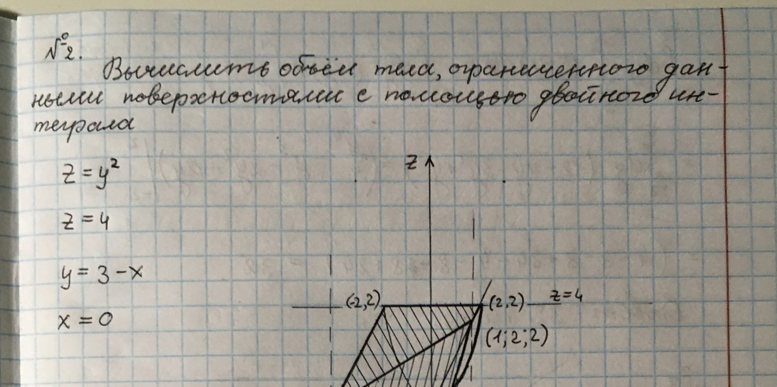 №2.
Вычислить объём тела, ограниченного дан-
ными поверхностями с помощью двойного ин-
теграла
z = y²
z = 4
y = 3 - x
x = 0
z
(-2,2)
(2,2)
z=4
(1; 2; 2)